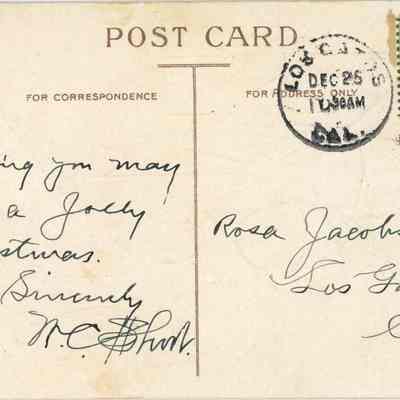 POST CARD
FOR CORRESPONDENCE
FOR ADDRESS ONLY
LOS GATOS
DEC 25
CAL.
ing you may
a Jolly
stmas.
Sincerely
W.C.
Rosa Jacobs
Los Ga
C